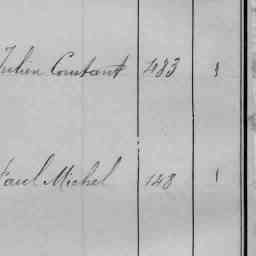 Julien Constant 483 1
Paul Michel 148 1